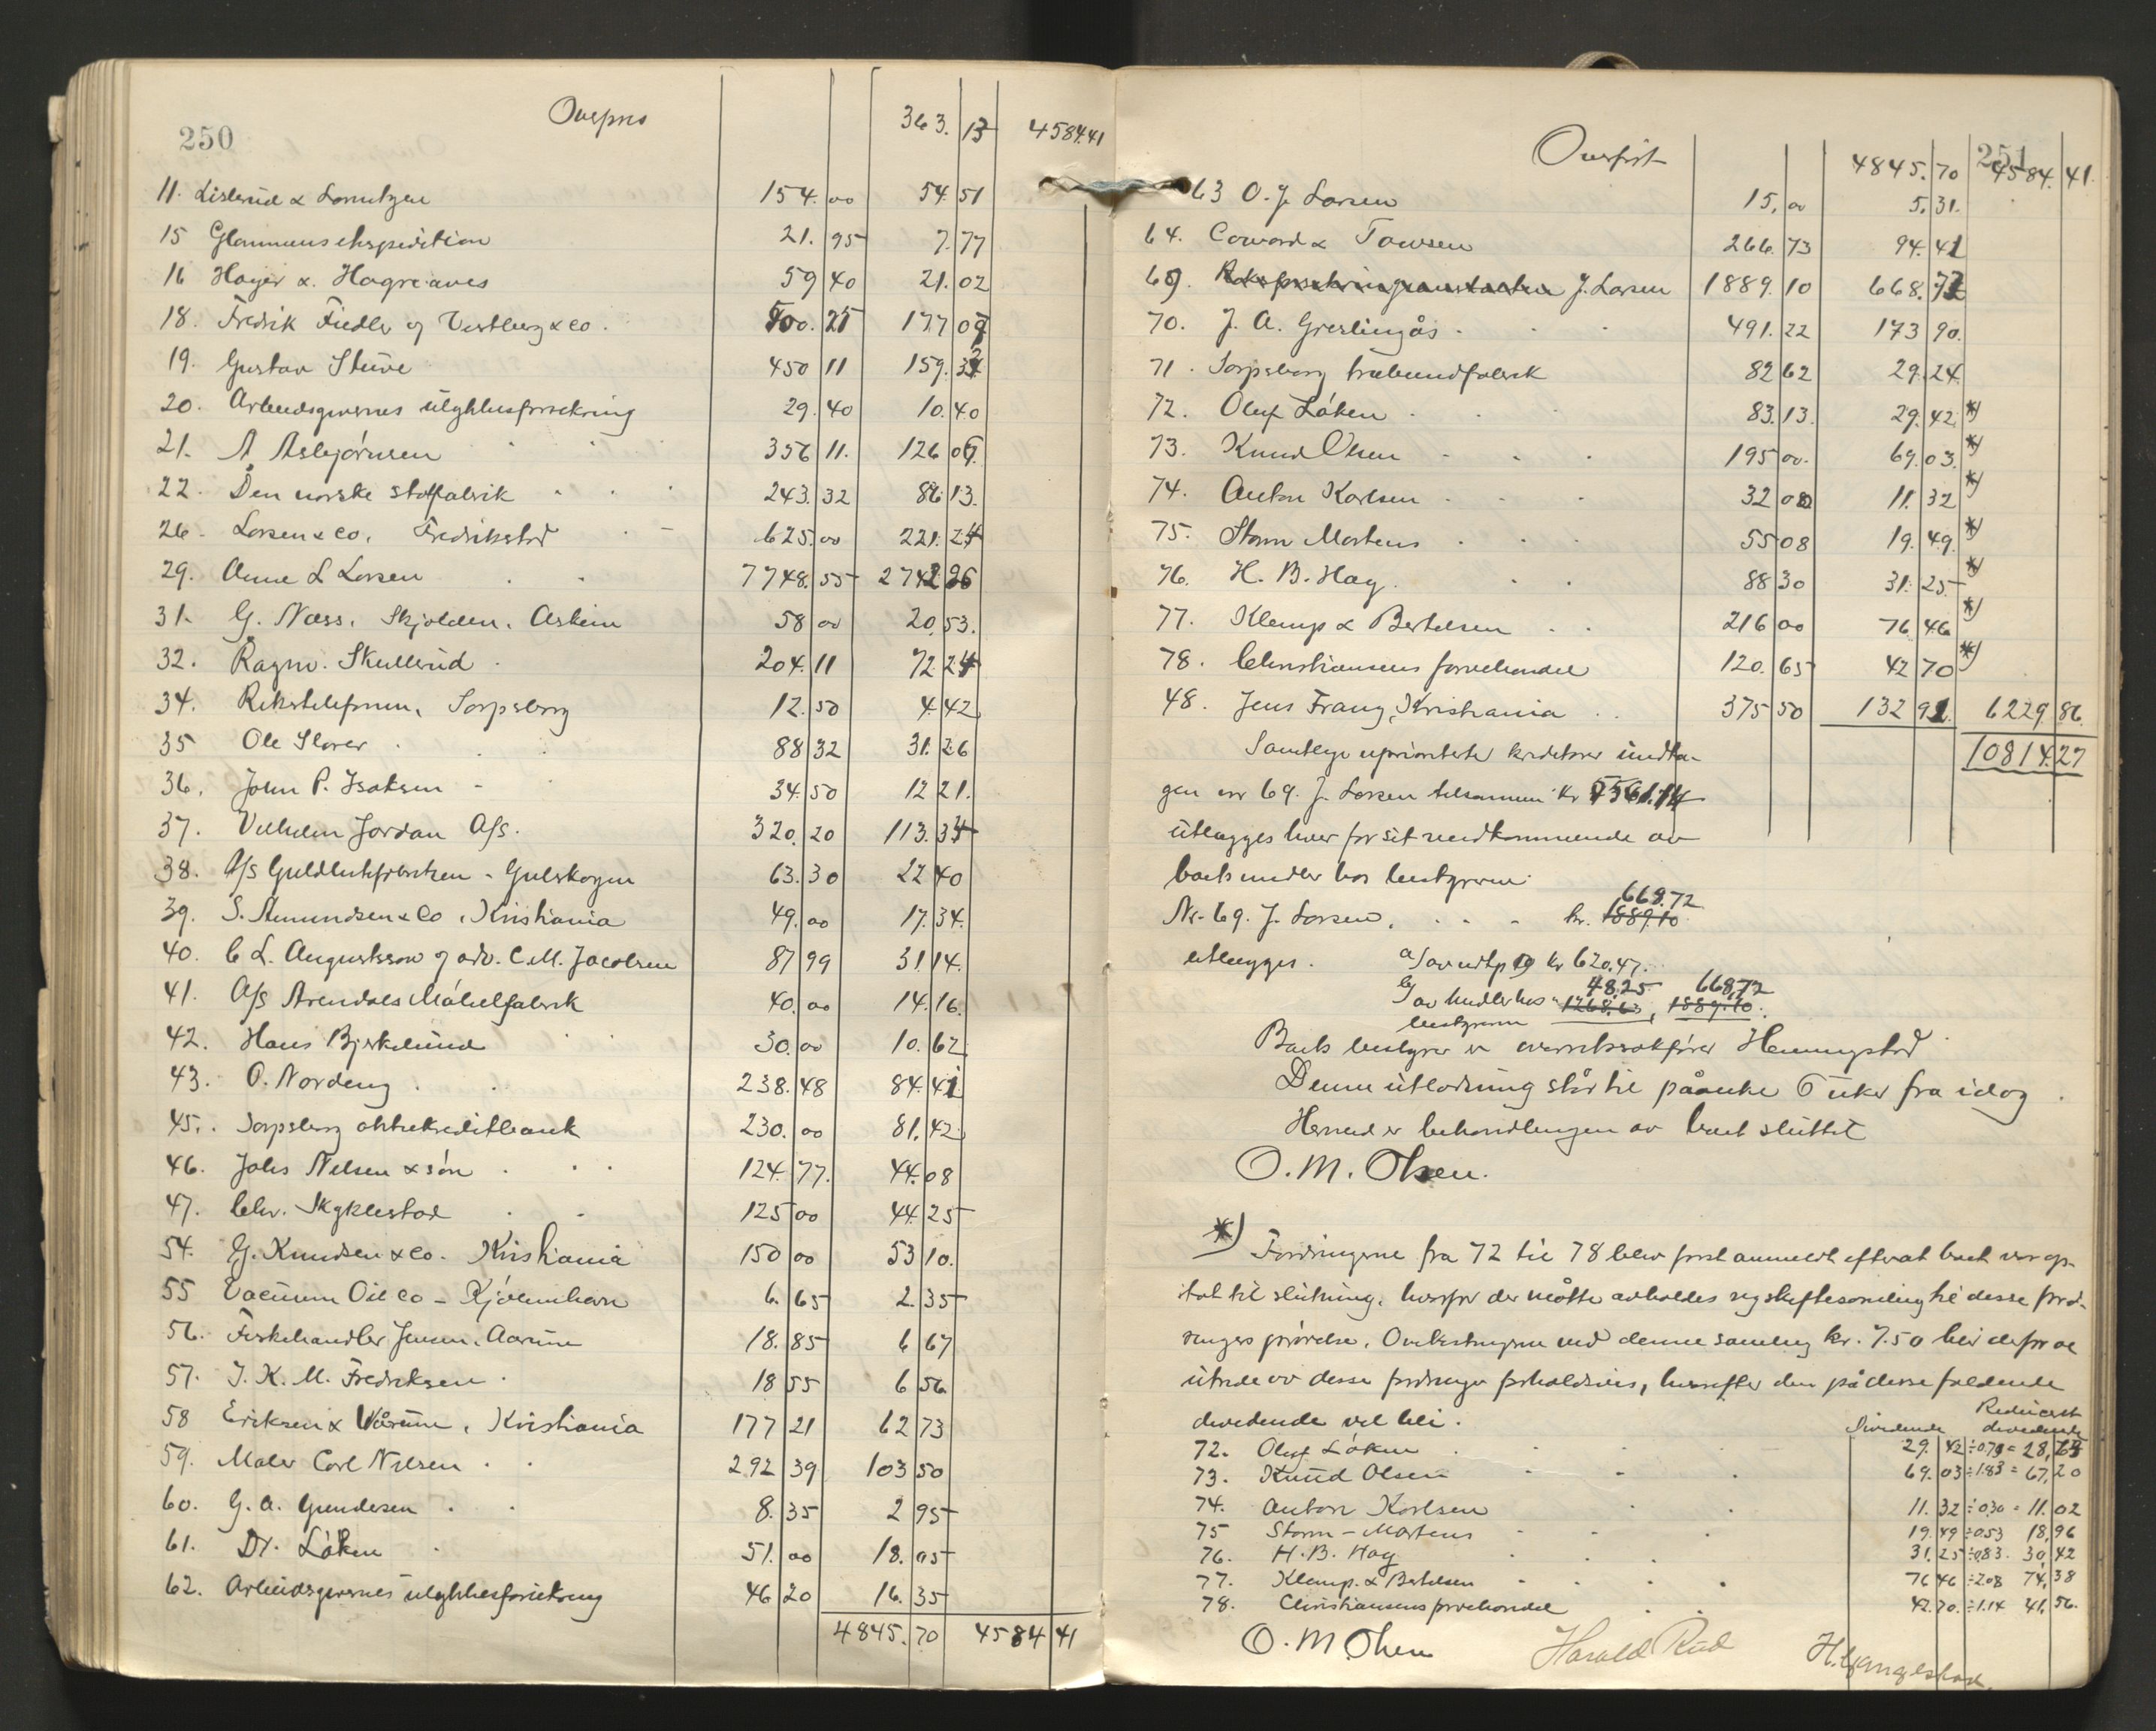 250
363. 13 4584.41
11. Listerud & Lorentzen 154.00 54.51
15 Glommens ekspedition 21.95 7.77
16 Høyer & Hagreaves 59 40 21.02
18. Fredrik Fiedler og Vestberg & co. 500.25 177 07
19. Gustav Stüve 450 11 159.32
20. Arbeidsgivernes ulykkesforsikring 29.40 10.40
21. A Asbjørnsen 356 11. 126 06
22. Den norske stolfabrik 243.32 86.13.
26. Larsen & co. Fredrikstad 625.00 221.24
29. Anne L Larsen 7748.55 2742 96
31. G. Næss. Skjolden. Askim 58 00 20.53.
32. Ragnv. Skullerud 204.11 72 24
34. Rikstelefonen, Sarpsborg 12.50 4.42
35 Ole Slorer 88 32 31.26
36. John P. Isaksen 34.50 12 21.
37. Vilhelm Jordan A/s. 320.20 113.34
38. A/s Guldlistfabrikken - Gulskogen 63.30 22 40
39. S. Amundsen & Co, Kristiania 49.00 17.34.
40. C L. Augustsson v adv. C. M. Jacobsen 87 99 31 14.
41. A/s Arendals Møbelfabrik 40.00 14.16.
42. Hans Bjerkelund 30.00 10.62
43. O. Nordeng 238.48 84.41
45. Sarpsborg aktiekreditbank 230.00 81.42
46. Johs Nilsen & søn 124.77. 44.08
47. Chr. Skyklestad 125 00 44.25
54. G. Knudsen & co. Kristiania 150 00 53 10.
55 Vacuum Oil co - Kjøbenhavn 6.65 2.35
56. Fiskehandler Jensen, Aarum 18.85 6 67
57. J. K. M. Fredriksen 18 55 6 56
58 Eriksen & Wårum, Kristiania 177 21 62 73
59. Maler Carl Nilsen 292 39 103 50
60. G. A. Gundersen 8.35 2 95
61. Dr. Løken 51.00 18.05
62. Arbeidsgivernes ulykkesforsikring 46 20 16.35
4845.70 4584 41
251
Overført 4845.70 4584.41.
63 O. J. Larsen 15.00 5.31.
64. Coward & Towsen 266.73 94.41
69. J. Larsen 1889.10 668.72
70. J. A. Greslingås 491.22 173 90.
71. Sarpsborg træbundfabrik 82 62 29.24.
72. Oluf Løken 83.13. 29.42 *)
73. Knud Olsen 195 00. 69.03. *)
74. Anton Karlsen 32 08 11.32 *)
75. Storm Martens 55 08 19.49. *)
76. H. B. Hag. 88 30 31.25 *)
77. Klemp & Bertelsen 216 00 76 46 *)
78. Christiansens farvehandel 120.65 42 70 *)
48. Jens Franz, Kristiania 375 50 132 92. 6229 86.
10814.27
Samtlige upriorterte kreditorer undta-
gen nr 69. J. Larsen tilsammen kr 5561.14
utlægges hver for sit vedkommende av
boets midler hos bestyreren.
668.72
Nr. 69. J. Larsen, kr. 1889.10
utlægges. a/ av utlp 19 kr 620.47.
48.25 668.72
b/ av midler hos " 1268.63, 1889.10.
bestyreren
Boets bestyrer er overretssakfører Hemmgstad
Denne utlodning står til påanke 6 uker fra idag.
Hermed er behandlingen av boet sluttet
O. M. Olsen.
*) Fordringerne fra 72 til 78 blev først anmeldt efterat boet var op-
tat til slutning, hvorfor der måtte avholdes ny skiftesamling til desse ford-
ringers prøvelse. Omkostningerne ved denne samling kr. 7.50 blir derfor at
utrede av desse fordringer forholdsvis, hvorefter den på disse faldende
dividende vil bli. Dividende Reducert dividende
72. Oluf Løken 29.42 ÷ 0.79 = 28,63
73. Knud Olsen 69.03 ÷ 1.83 = 67,20
74. Anton Karlsen 11.32 ÷ 0.30 = 11.02
75 Storm - Martens 19.49 ÷ 0.53 18,96
76. H. B. Hag 31.25 ÷ 0.83. 30,42
77. Klemp. & Bertelsen 76 46 ÷ 2.08 74,38
78. Christiansens farvehandel 42.70. ÷ 1.14 41,56.
O. M. Olsen Harald Rud